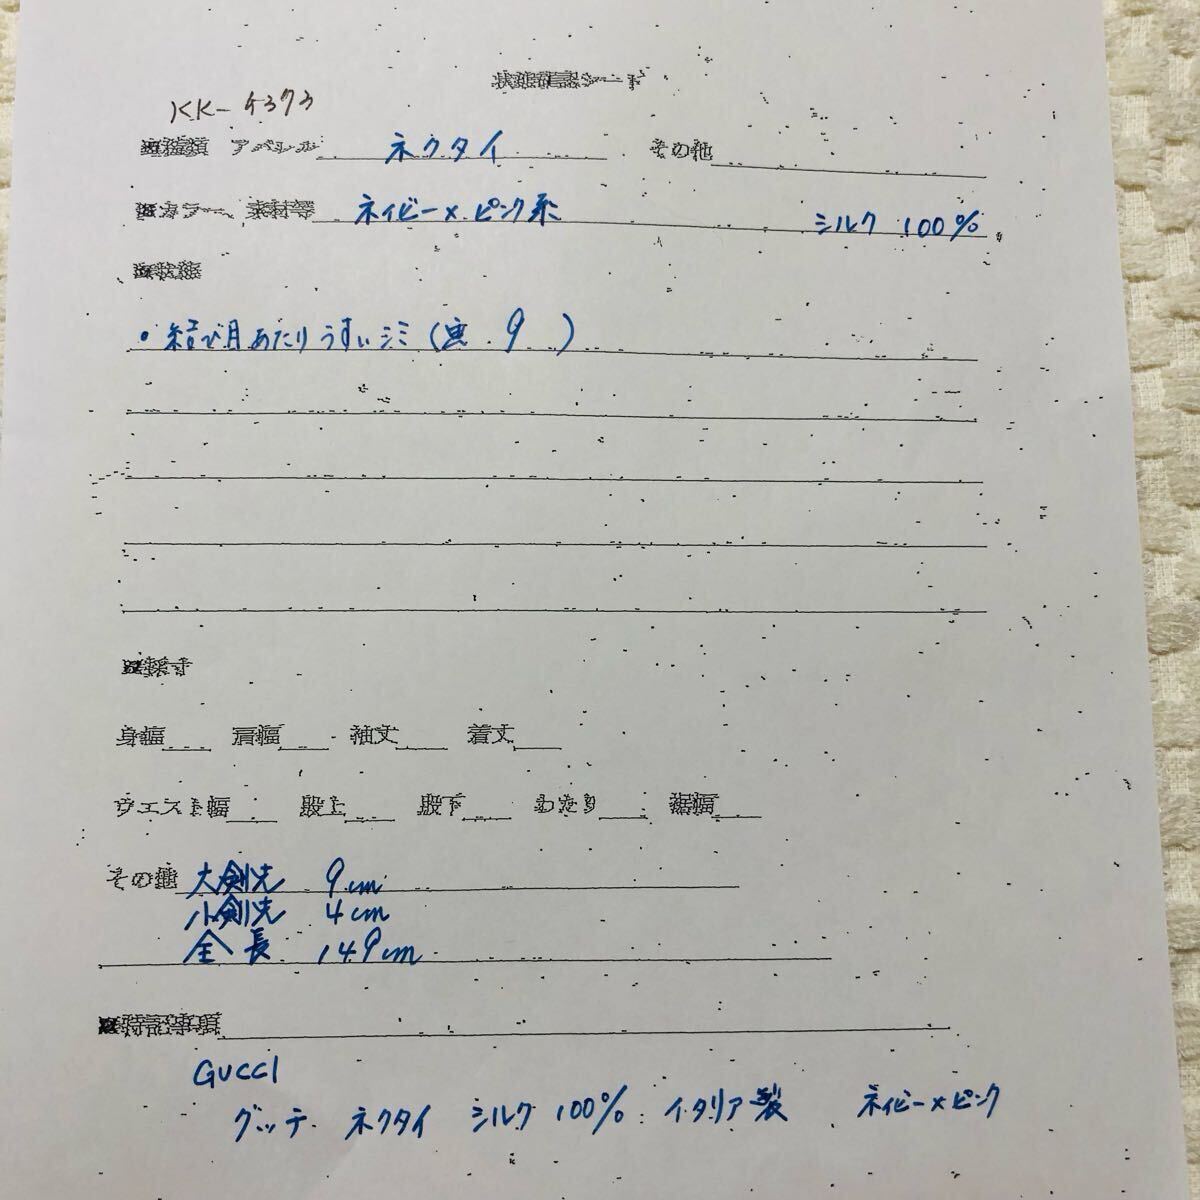 状態確認シート
KK-4373
種類 アパレル ネクタイ その他
カラー、素材等 ネイビー×ピンク系 シルク 100%
状態
・結び目あたりうすいシミ( 9 )
採寸
身幅 肩幅 袖丈 着丈
ウエスト幅 股上 股下 わたり 裾幅
その他 大剣先 9cm
小剣先 4cm
全長 149cm
特記事項
GUCCI
グッチ ネクタイ シルク 100% イタリア製 ネイビー×ピンク